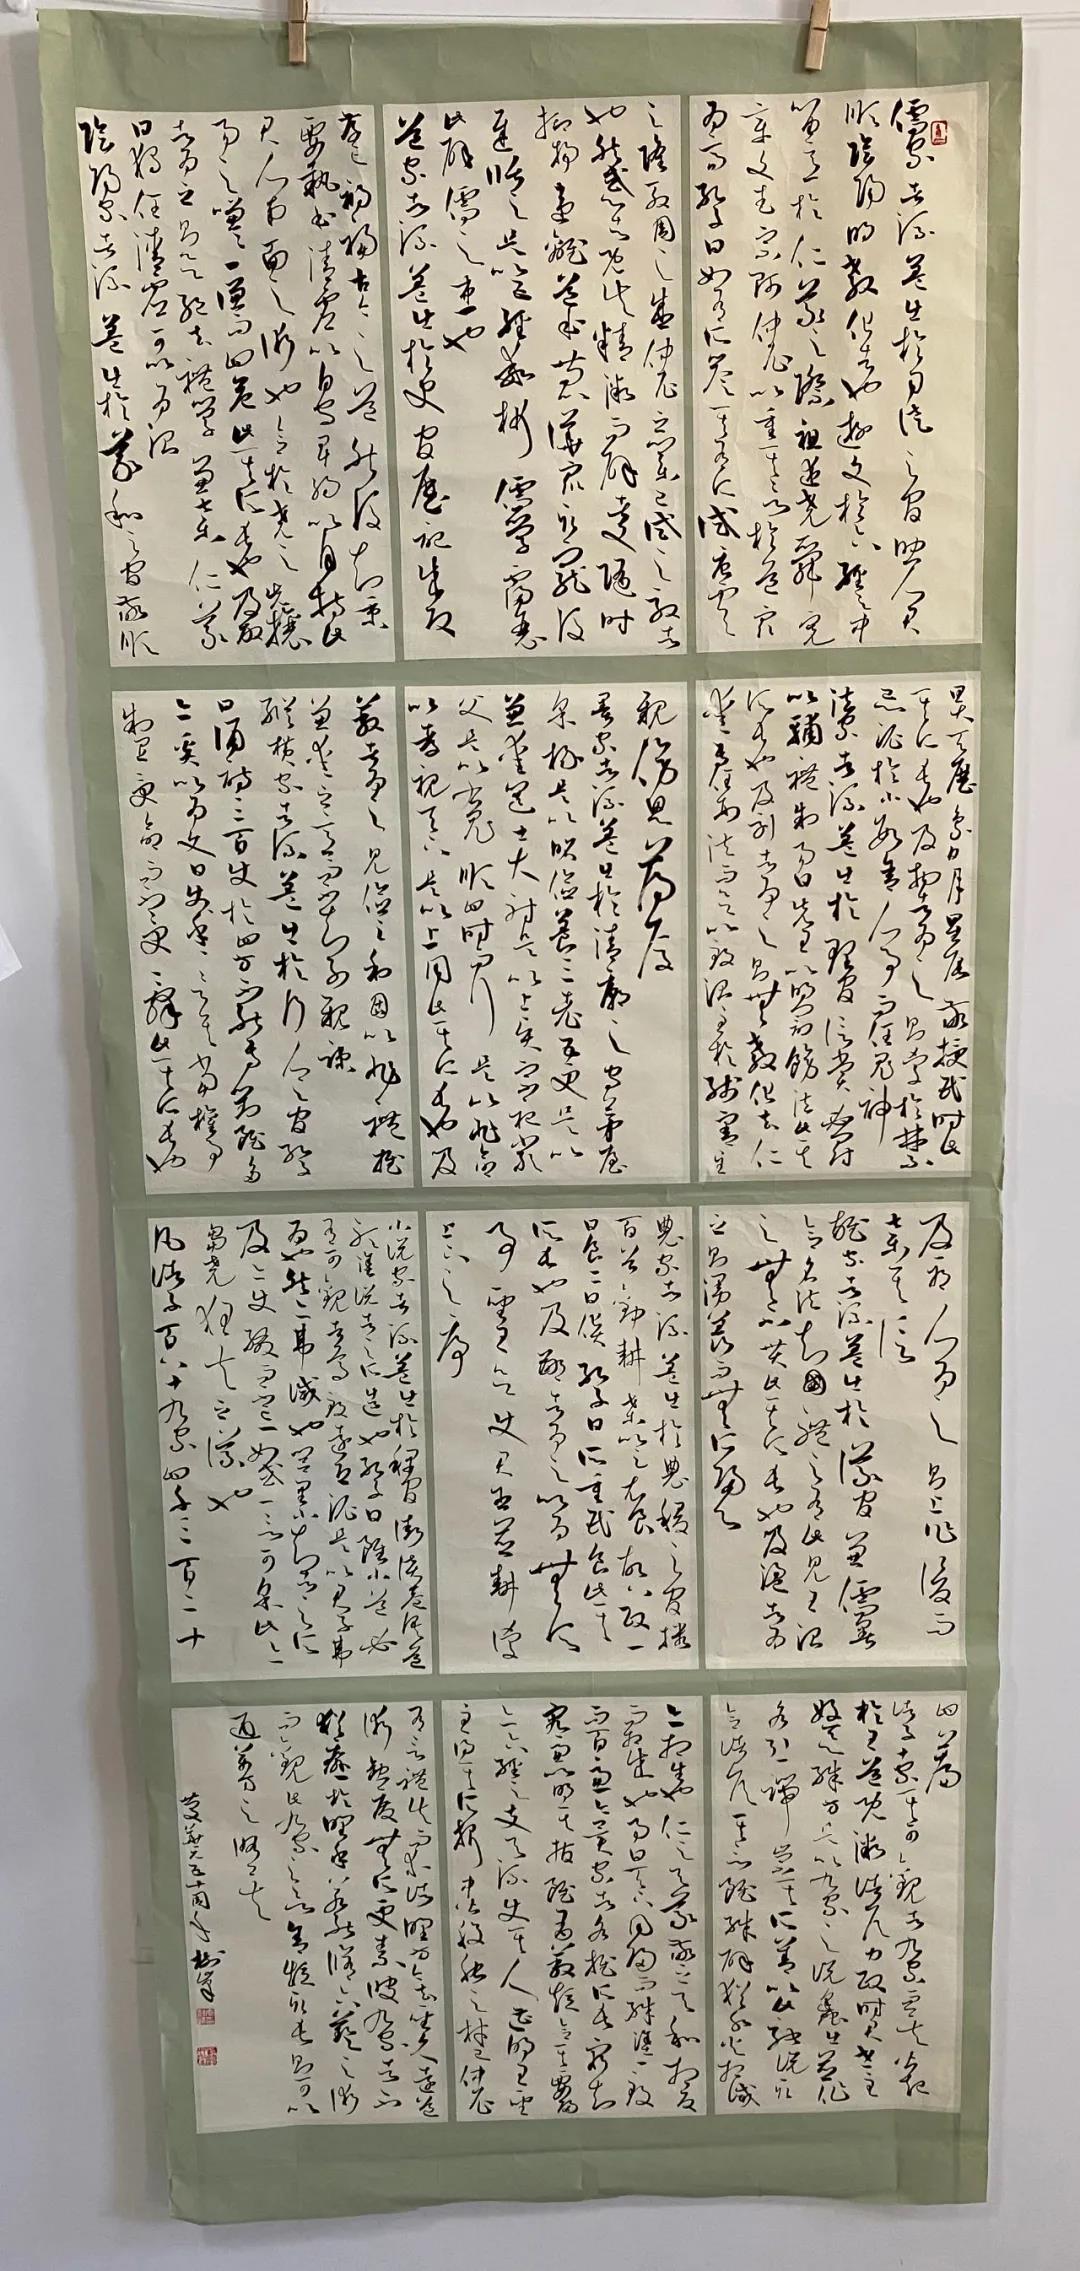 儒家者流蓋出於司徒之官助人君
順陰陽明教化者也遊文於六經之中
留意於仁義之際祖述堯舜憲
章文武宗師仲尼以重其言於道最
為高孔子曰如有所譽其有所試唐虞
之隆殷周之盛仲尼之業已試之效者
也然惑者既失精微而辟者又隨時
抑揚違離道本苟以譁眾取寵後
進循之是以五經乖析儒學寖衰
此辟儒之患也
道家者流蓋出於史官歷記成敗
存亡禍福古今之道然後知秉
要執本清虛以自守卑弱以自持此
君人南面之術也合於堯之克攘
易之嗛嗛一謙而四益此其所長也及放
者為之則欲絕去禮學兼棄仁義
曰獨任清虛可以為治
陰陽家者流蓋出於羲和之官敬順
昊天歷象日月星辰敬授民時此
其所長也及拘者為之則牽於禁
忌泥於小數舍人事而任鬼神
法家者流蓋出於理官信賞必罰
以輔禮制易曰先王以明罰飭法此其
所長也及刻者為之則無教化去仁
愛專任刑法而欲以致治至於殘害至
親傷恩薄厚
墨家者流蓋出於清廟之守茅屋
采椽是以貴儉養三老五更是以
兼愛選士大射是以上賢宗祀嚴
父是以右鬼順四時而行是以非命
以孝視天下是以上同此其所長也及
蔽者為之見儉之利因以非禮推
兼愛之意而不知別親疏
縱橫家者流蓋出於行人之官孔子
曰誦詩三百使於四方不能專對雖多
亦奚以為又曰使乎使乎言其當權事
制宜受命而不受辭此其所長也
及邪人為之則上詐諼而
棄其信
雜家者流蓋出於議官兼儒墨
合名法知國體之有此見王治
之無不貫此其所長也及盪者為
之則漫羨而無所歸心
農家者流蓋出於農稷之官播
百穀勸耕桑以足衣食故八政一
曰食二曰貨孔子曰所重民食此其
所長也及鄙者為之以為無所
事聖王欲使君臣並耕誖
上下之序
小說家者流蓋出於稗官街談巷語道
聽塗說者之所造也孔子曰雖小道必
有可觀者焉致遠恐泥是以君子弗
為也然亦弗滅也閭里小知者之所
及亦使綴而不忘如或一言可采此亦
芻蕘狂夫之議也
凡諸子百八十九家四千三百二十
四篇
諸子十家其可觀者九家而已皆起
於王道既微諸侯力政時君世主
好惡殊方是以九家之說蠭出並作
各引一端崇其所善以此馳說取
合諸侯其言雖殊辟猶水火相滅
亦相生也仁之與義敬之與和相反
而皆相成也易曰天下同歸而殊塗一致
而百慮今異家者各推所長窮知
究慮以明其指雖有蔽短合其要歸
亦六經之支與流裔使其人遭明王聖
主得其所折中皆股肱之材已仲尼
有言禮失而求諸野方今去聖久遠道
術缺廢無所更索彼九家者不
猶瘉於野乎若能修六藝之術
而觀此九家之言舍短取長則可以
通萬方之略矣
五十周年